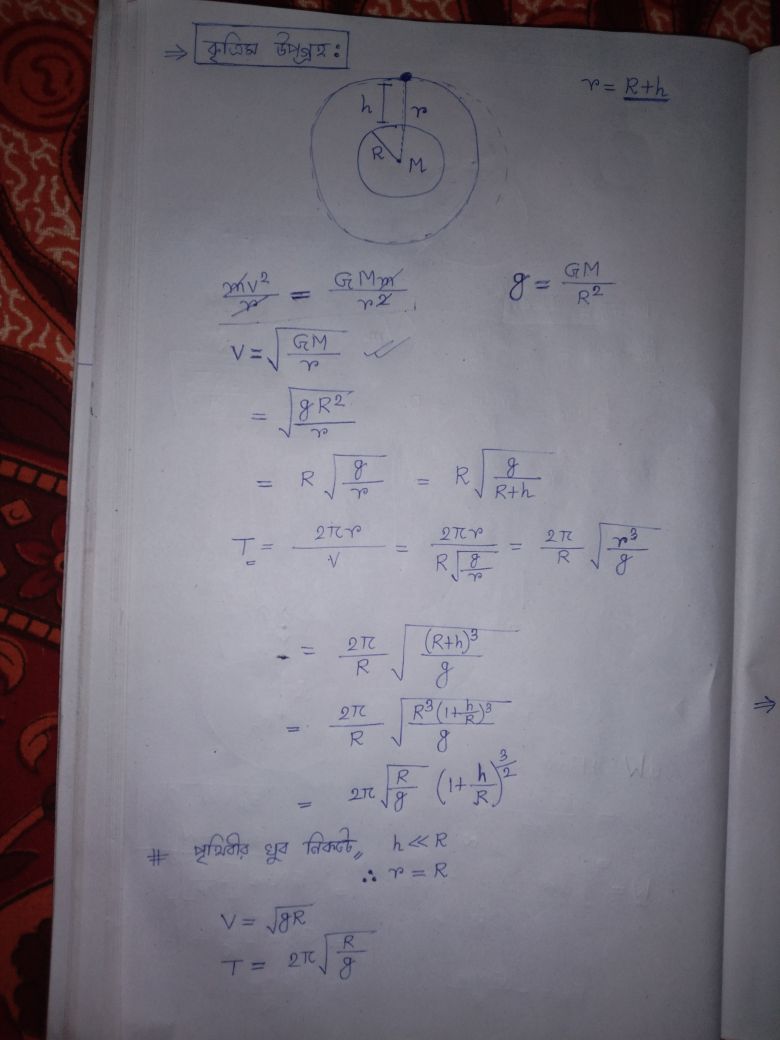 ⇒ কৃত্রিম উপগ্রহ :
r = R+h
h r
R M
mv²/r = GMm/r²
g = GM/R²
V = √(GM/r)
= √(gR²/r)
= R √(g/r) = R √(g/(R+h))
T = 2πr/V = 2πr/(R√(g/r)) = 2π/R √(r³/g)
= 2π/R √((R+h)³/g)
= 2π/R √(R³(1+h/R)³/g)
= 2π√(R/g) (1+h/R)^(3/2)
# পৃথিবীর খুব নিকটে,, h << R
∴ r = R
V = √gR
T = 2π√(R/g)
⇒